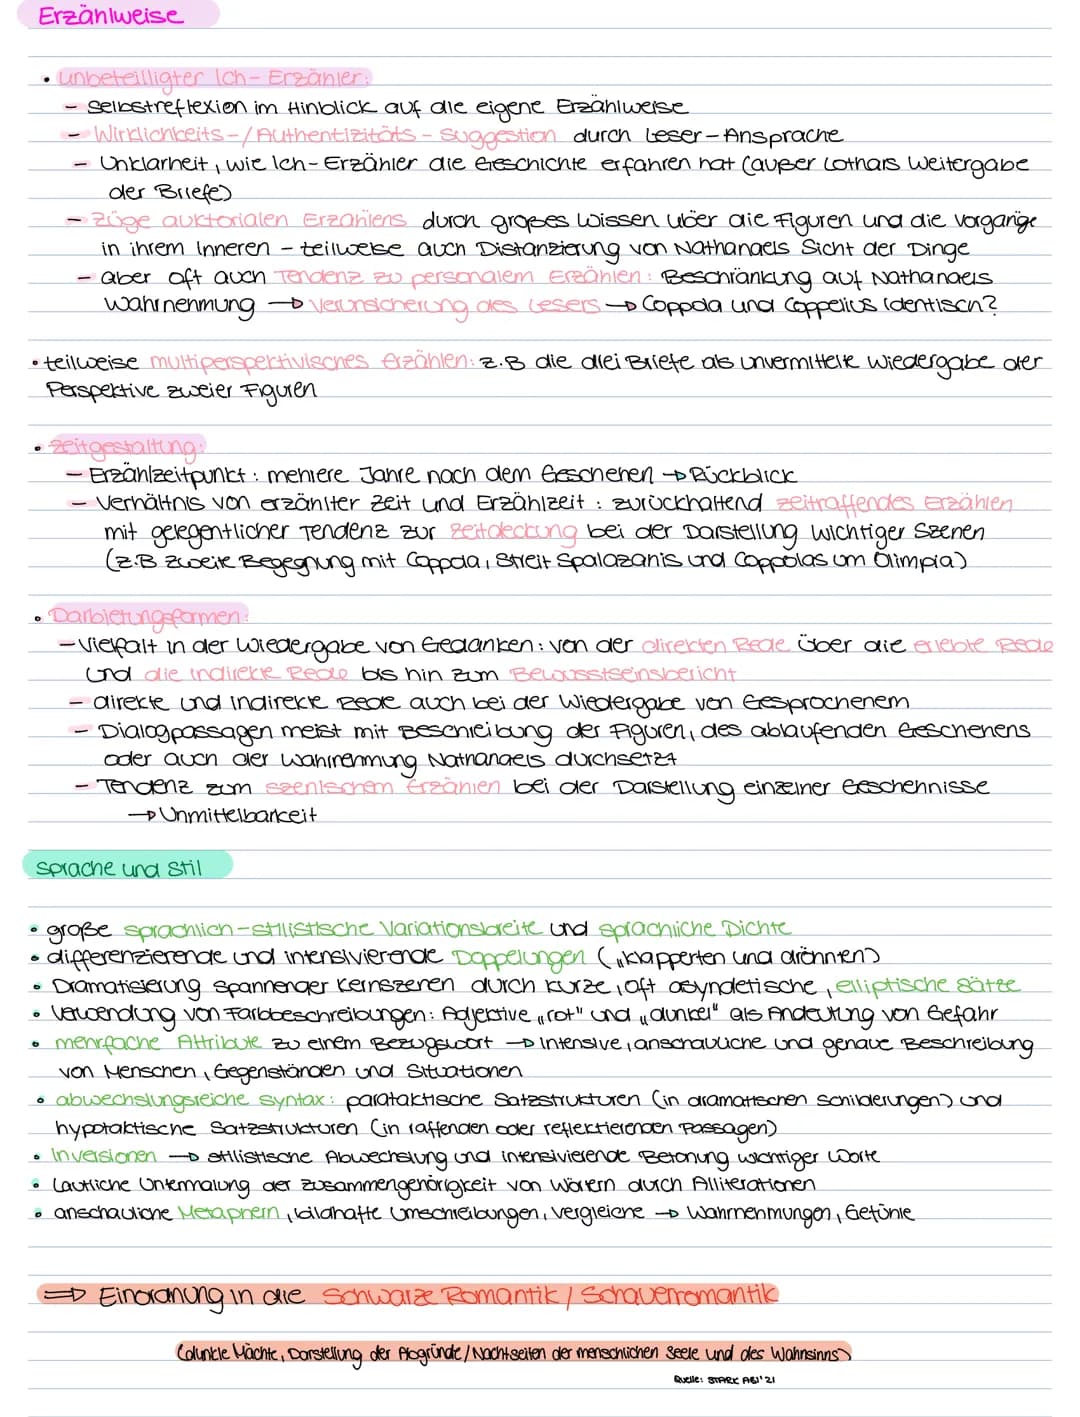 Erzählweise
• unbeteiligter Ich-Erzähler:
- Selbstreflexion im Hinblick auf die eigene Erzählweise
- Wirklichkeits-/Authentizitäts-Suggestion durch Leser-Ansprache
- Unklarheit, wie Ich-Erzähler die Geschichte erfahren hat (außer Lothars Weitergabe
der Briefe)
- Züge auktorialen Erzählens durch großes Wissen über die Figuren und die Vorgänge
in ihrem Inneren - teilweise auch Distanzierung von Nathanaels Sicht der Dinge
- aber oft auch Tendenz zu personalem Erzählen: Beschränkung auf Nathanaels
Wahrnehmung → Verunsicherung des Lesers → Coppola und Coppelius identisch?
• teilweise multiperspektivisches Erzählen: z.B die drei Briefe als unvermittelte Wiedergabe der
Perspektive zweier Figuren
• Zeitgestaltung:
- Erzählzeitpunkt: mehrere Jahre nach dem Geschehen → Rückblick
- Verhältnis von erzählter Zeit und Erzählzeit: zurückhaltend zeitraffendes Erzählen
mit gelegentlicher Tendenz zur Zeitdeckung bei der Darstellung wichtiger Szenen
(z.B zweite Begegnung mit Coppola, Streit Spalazanis und Coppolas um Olimpia)
• Darbietungsformen:
- Vielfalt in der Wiedergabe von Gedanken: von der direkten Rede über die erlebte Rede
und die indirekte Rede bis hin zum Bewusstseinsbericht
- direkte und indirekte Rede auch bei der Wiedergabe von Gesprochenem
- Dialogpassagen meist mit Beschreibung der Figuren, des ablaufenden Geschehens
oder auch der Wahrnehmung Nathanaels durchsetzt
- Tendenz zum szenischem Erzählen bei der Darstellung einzelner Geschehnisse
→ Unmittelbarkeit
Sprache und Stil
• große sprachlich-stilistische Variationsbreite und sprachliche Dichte
• differenzierende und intensivierende Doppelungen („klapperten und dröhnten)
• Dramatisierung spannender Kernszenen durch kurze, oft asyndetische, elliptische Sätze
• Verwendung von Farbbeschreibungen: Adjektive „rot" und „dunkel" als Andeutung von Gefahr
• mehrfache Attribute zu einem Bezugswort → intensive, anschauliche und genaue Beschreibung
von Menschen, Gegenständen und Situationen
• abwechslungsreiche Syntax: parataktische Satzstrukturen (in dramatischen Schilderungen) und
hypotaktische Satzstrukturen (in raffenden oder reflektierenden Passagen)
• Inversionen → stilistische Abwechslung und intensivierende Betonung wichtiger Worte
• Lautliche Untermalung der Zusammengehörigkeit von Wörtern durch Alliterationen
• anschauliche Metaphern, bildhafte Umschreibungen, Vergleiche → Wahrnehmungen, Gefühle
⇒ Einordnung in die Schwarze Romantik / Schauerromantik
(dunkle Mächte, Darstellung der Abgründe / Nachtseiten der menschlichen Seele und des Wahnsinns)
Quelle: STARK ABI'21